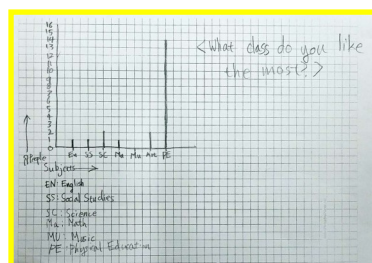 <What class do you like
the most?>
16
15
14
13
12
11
10
9
8
7
6
5
4
3
2
1
0
People
En SS SC Ma Mu Art PE
Subjects
EN: English
SS: Social Studies
SC: Science
Ma: Math
MU: Music
PE: Physical Education